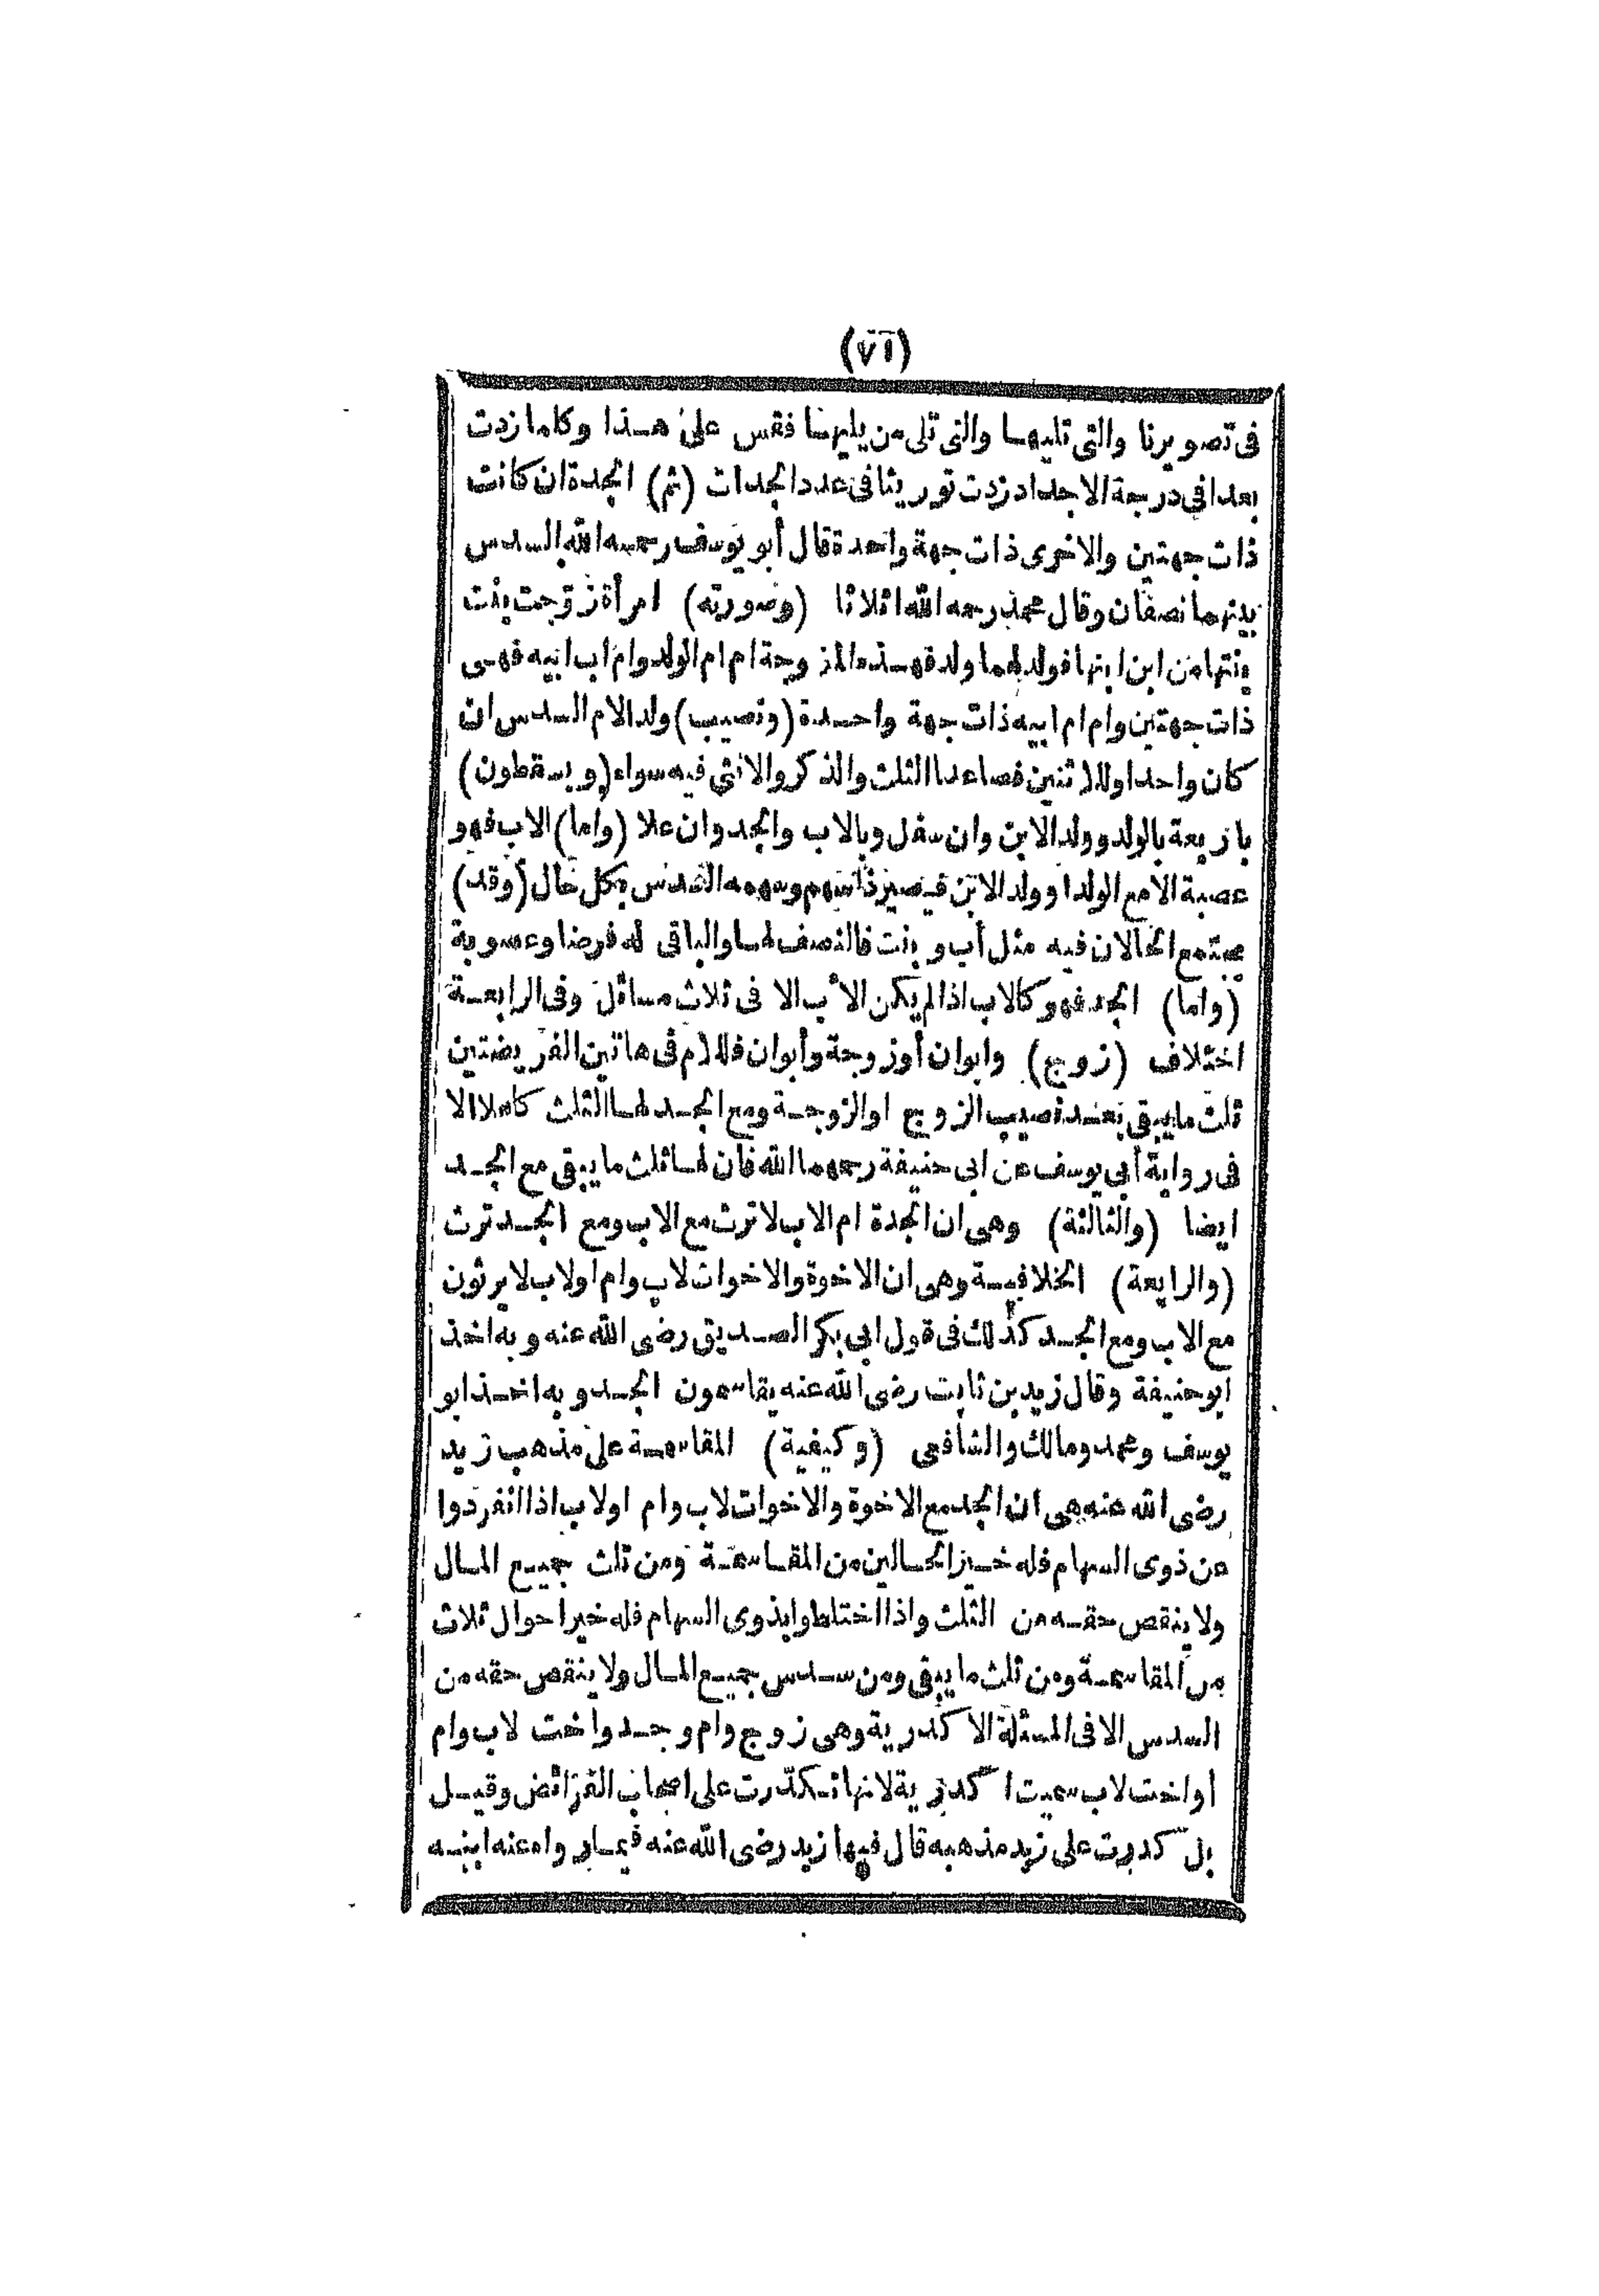 (٧١)
فى تصويرنا والتى تليها والتى تلى من يليها فقس على هذا وكلما زدت
بعدا فى درجة الاجداد زدت توريثا فى عدد الجدات (ثم) الجدة ان كانت
ذات جهتين والاخرى ذات جهة واحدة قال أبو يوسف رحمه الله السدس
بينهما نصفان وقال محمد رحمه الله اثلاثا (وصورته) امرأة زوّجت بنت
بنتها من ابن ابنها فولد لهما ولد فهذه المزوجة ام ام ام الولد وام اب ابيه فهى
ذات جهتين وام ام ابيه ذات جهة واحدة (ونصيب) ولد الام السدس ان
كان واحدا وللاثنين فصاعدا الثلث والذكر والانثى فيه سواء (ويسقطون)
باربعة بالولد وولد الابن وان سفل وبالاب والجد وان علا (واما) الاب فهو
عصبة الا مع الولد او ولد الابن فيصير ذا سهم وسهمه السدس بكل حال (وقد)
يجتمع الحالان فيه مثل أب وبنت فالنصف لها والباقى له فرضا وعصوبة
(واما) الجد فهو كالاب اذا لم يكن الأب الا فى ثلاث مسائل وفى الرابعة
اختلاف (زوج) وابوان أو زوجة وأبوان فللام فى هاتين الفريضتين
ثلث ما يبقى بعد نصيب الزوج او الزوجة ومع الجد لها الثلث كاملا الا
فى رواية أبى يوسف عن ابى حنيفة رحمهما الله فان لها ثلث ما يبقى مع الجد
ايضا (والثالثة) وهى ان الجدة ام الاب لا ترث مع الاب ومع الجد ترث
(والرابعة) الخلافية وهى ان الاخوة والاخوات لاب وام او لاب لا يرثون
مع الاب ومع الجد كذلك فى قول ابى بكر الصديق رضى الله عنه وبه اخذ
ابو حنيفة وقال زيد بن ثابت رضى الله عنه يقاسمون الجد وبه اخذ ابو
يوسف ومحمد ومالك والشافعى (وكيفية) المقاسمة على مذهب زيد
رضى الله عنه هى ان الجد مع الاخوة والاخوات لاب وام او لاب اذا انفردوا
عن ذوى السهام فله خير الحالين من المقاسمة ومن ثلث جميع المال
ولا ينقص حقه من الثلث واذا اختلطوا بذوى السهام فله خير احوال ثلاث
من المقاسمة ومن ثلث ما يبقى ومن سدس جميع المال ولا ينقص حقه من
السدس الا فى المسئلة الاكدرية وهى زوج وام وجد واخت لاب وام
او اخت لاب سميت اكدرية لانها تكدّرت على اصحاب الفرائض وقيل
بل كدرت على زيد مذهبه قال فيها زيد رضى الله عنه فيما رواه عنه ابنه